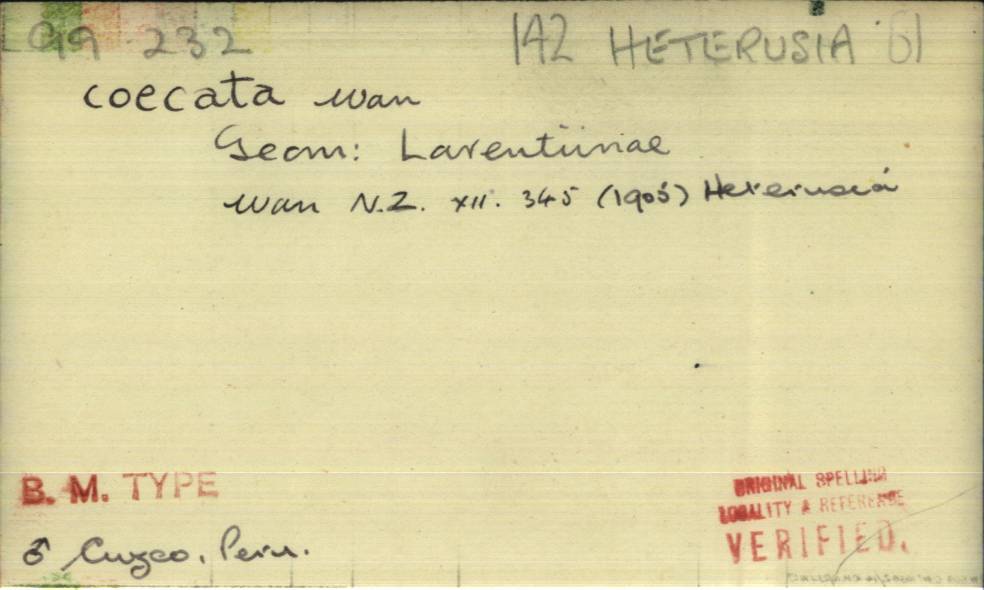 99.232 142 HETERUSIA 61
coecata Warr
Geom: Larentiinae
Warr N.Z. XII. 345 (1905) Heterusia
B. M. TYPE
ORIGINAL SPELLING
LOCALITY & REFERENCE
VERIFIED.
♂ Cuzco, Peru.